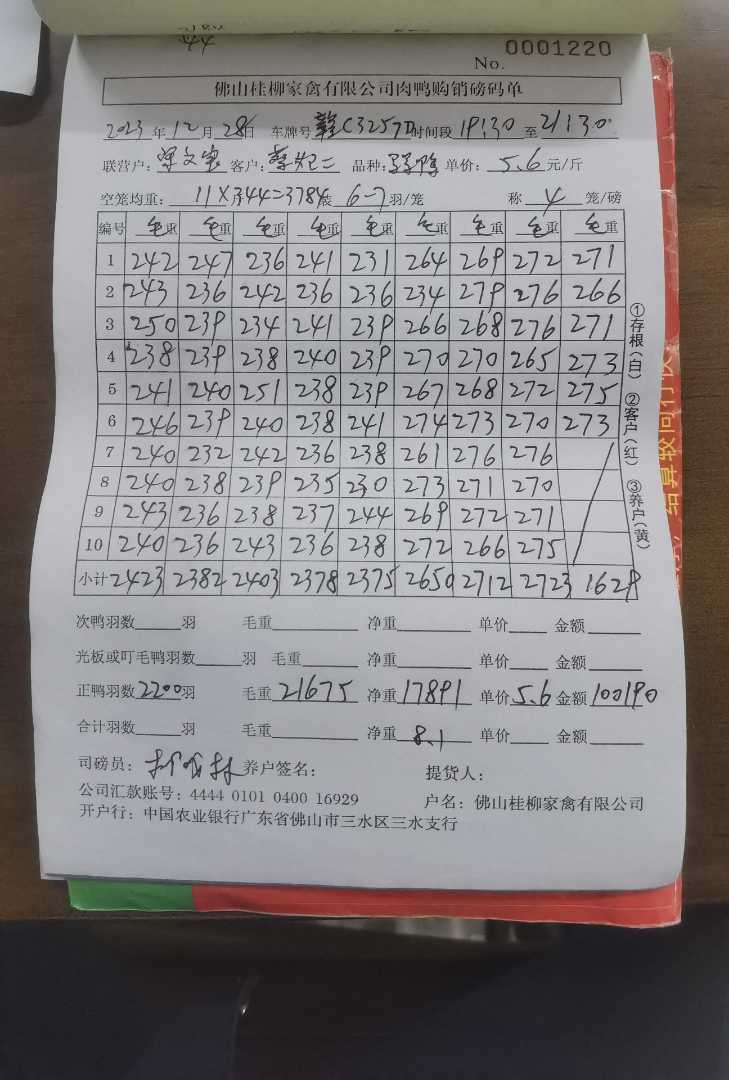 44
No. 0001220
佛山桂柳家禽有限公司肉鸭购销磅码单
2023年12月28日 车牌号 赣C3257D 时间段 19:30 至 21:30
联营户: 客户: 品种: 单价: 5.6 元/斤
空笼均重: 11×344=3784 6-7 羽/笼 称 4 笼/磅
编号 毛重 毛重 毛重 毛重 毛重 毛重 毛重 毛重 毛重
1 242 247 236 241 231 264 269 272 271
2 243 236 242 236 236 234 279 276 266
3 250 239 234 241 239 266 268 276 271
4 238 239 238 240 239 270 270 265 273
5 241 240 251 238 239 267 268 272 275
6 246 239 240 238 241 274 273 270 273
7 240 232 242 236 238 261 276 276
8 240 238 239 235 230 273 271 270
9 243 236 238 237 244 269 272 271
10 240 236 243 236 238 272 266 275
小计 2423 2382 2403 2378 2375 2650 2712 2723 1629
次鸭羽数 羽 毛重 净重 单价 金额
光板或叮毛鸭羽数 羽 毛重 净重 单价 金额
正鸭羽数 2200 羽 毛重 21675 净重 17891 单价 5.6 金额 100190
合计羽数 羽 毛重 净重 8.1 单价 金额
司磅员: 养户签名: 提货人:
公司汇款账号: 4444 0101 0400 16929 户名: 佛山桂柳家禽有限公司
开户行: 中国农业银行广东省佛山市三水区三水支行
①存根(白) ②客户(红) ③养户(黄)